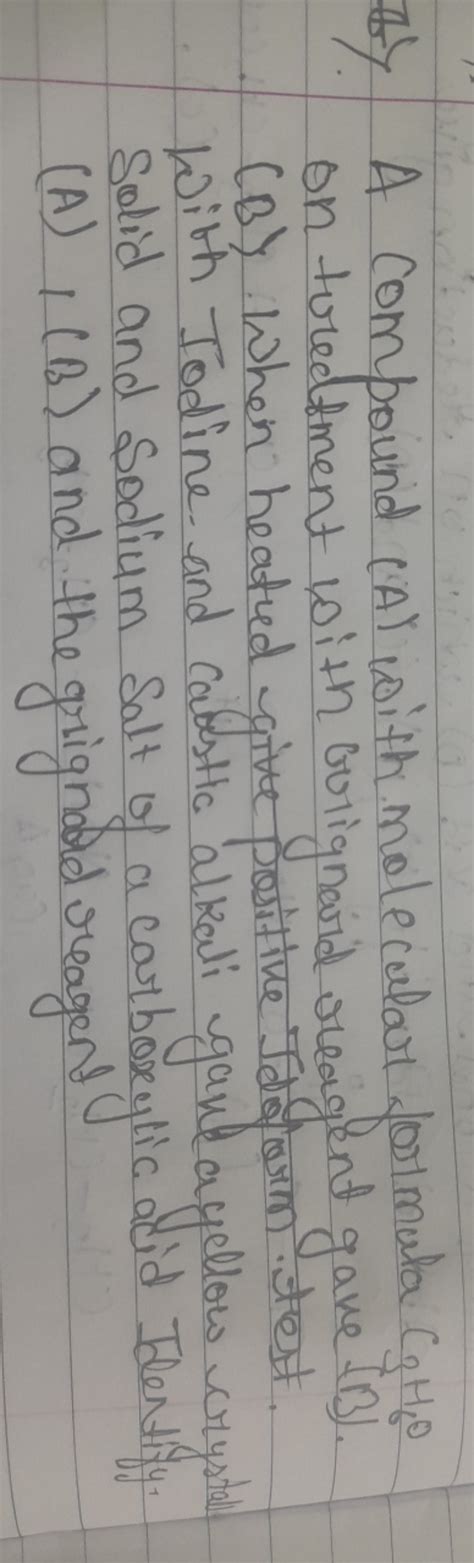 A Compound (A) with molecular formula C8H8O
on treedtment with Grignard reagent gave [B].
(B) when heated give positive Idoform test.
with Iodine and Caustic alkali gave a yellow crystall
Solid and Sodium Salt of a carboxylic acid Identify.
(A), (B) and the grignard reagent